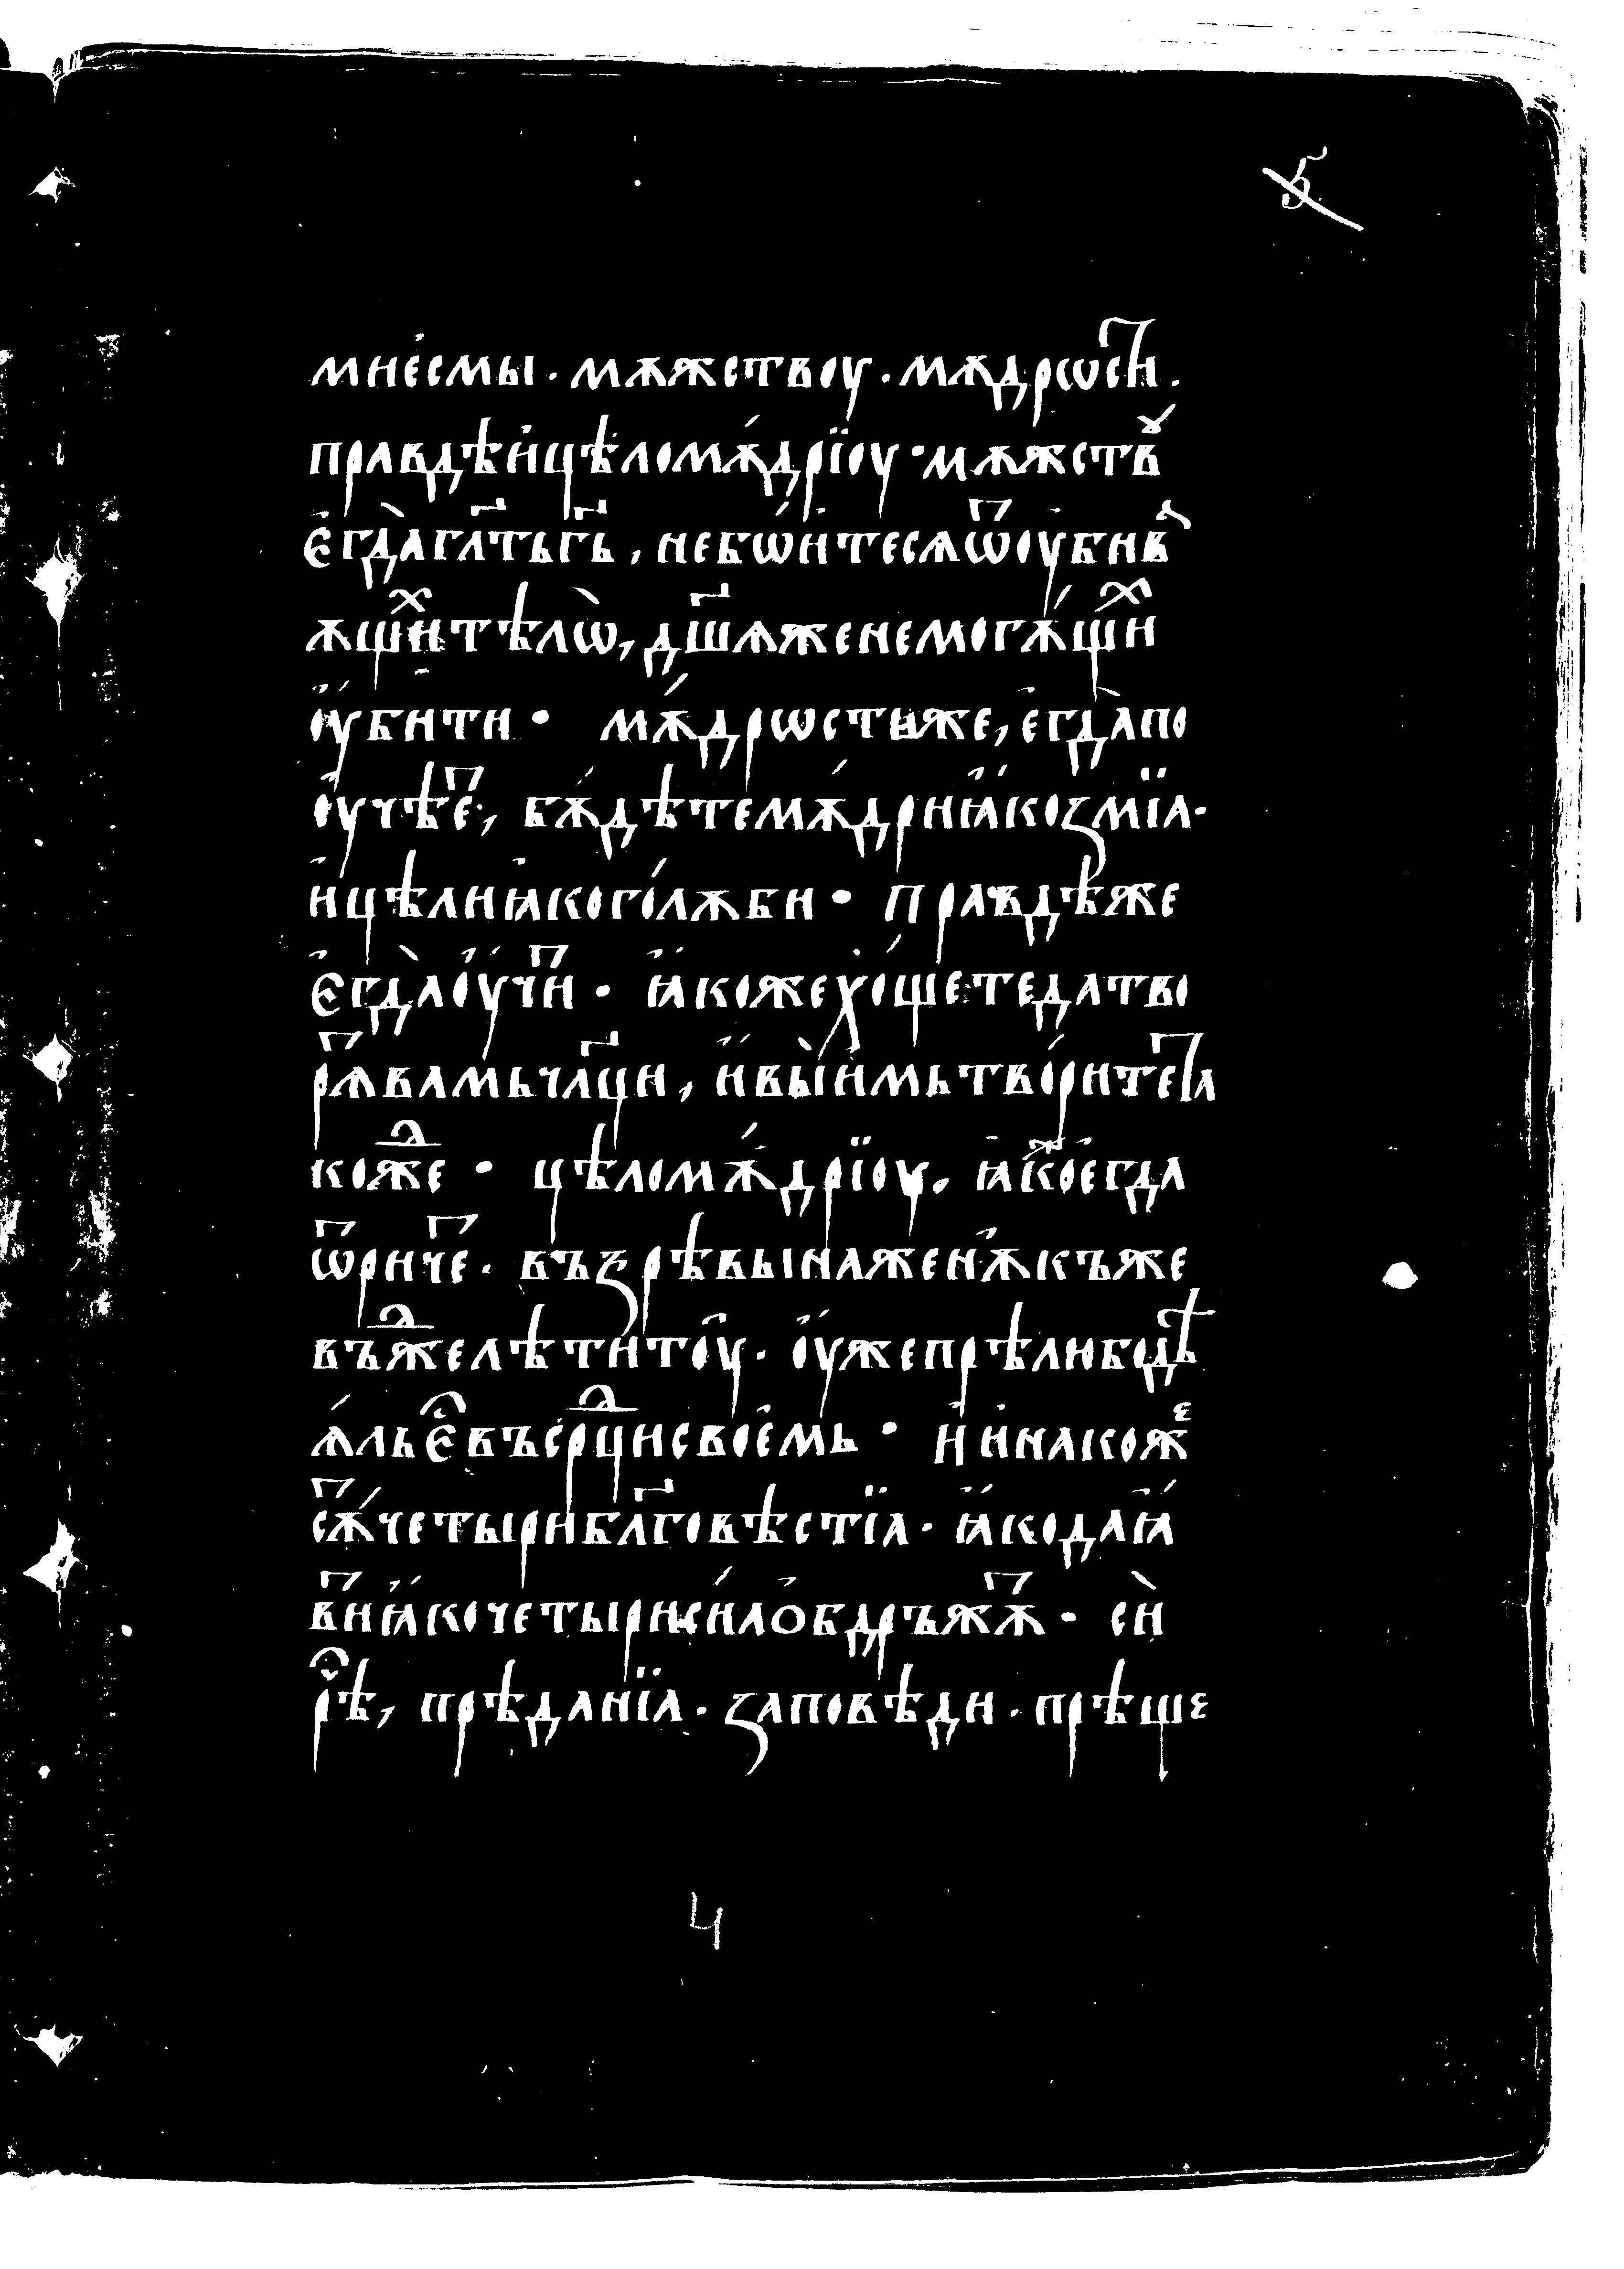 5
мнѐсмы · мѫжствоу · мѫдрѡстⷩ҇и ·
правдѣ и҆ цѣломѫ́дрїоу · мѫжствꙋ
є҆гда̀ гл҃ть г҃ь , не бѡ́итесѧ ѿ оу҆бивⷶ
ѫщⷯи҆ тѣлѡ̀ , дш҃ѧ же не могѫ́щⷯи
оу҆́бити · мѫ́дрѡсти же , є҆гда̀ по
оу҆чѣⷭ҇е , бѫ́дѣте мѫ́дри ꙗ҆́ко змїа ·
и҆ цѣли ꙗ҆ко го́лѫби · правдѣ же
є҆гда̀ оу҆́чⷭ҇и · ꙗ҆́коже хо́щете да тво
рⷭ҇ѧ вамь чл҃ци , и҆́ вы̀ и҆мь твори́теⷭ҇ та
коⷤже · цѣломѫ́дрїоу , ꙗ҆́кⷤо є҆гда
ѿриⷭ҇че · възрѣвы и на женѫ къже
въⷤжелѣти тоу҆ · оу҆́же прѣлюбодѣ
ѧ́ль є҆ⷭ҇ въ срⷣци свое҆мь · и҆ и҆нако жⷷ
сѫⷮ четыри бл҃говѣстїа · ꙗ҆́ко да ꙗ҆́
вⷮи ꙗ҆́ко четыри си́ла ѻ҆бдръжѫⷮ · сѝ
рⷱ҇ѣ , прѣданїа · заповѣди · прѣще
4